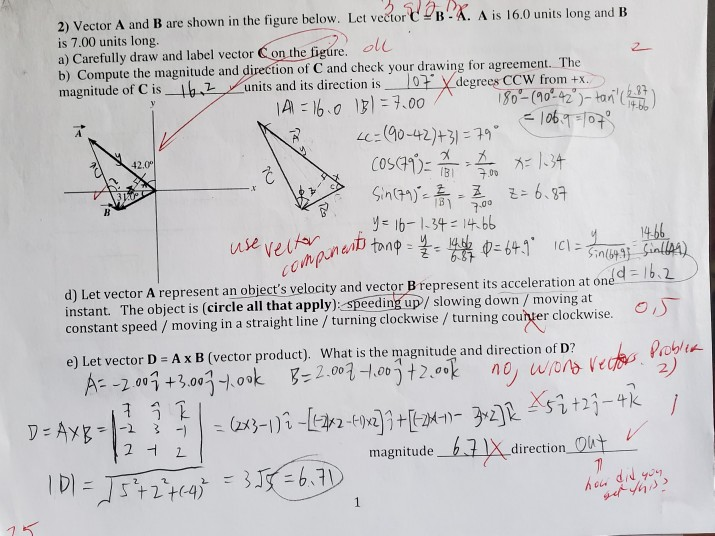 2) Vector A and B are shown in the figure below. Let vector C = B - A. A is 16.0 units long and B
is 7.00 units long.
a) Carefully draw and label vector C on the figure. ok
2
b) Compute the magnitude and direction of C and check your drawing for agreement. The
magnitude of C is 16.2 units and its direction is 107° degrees CCW from +x.
|A| = 16.0 |B| = 7.00
180°-(90°-42°)-tan⁻¹(6.87/14.66)
= 106.9 = 107°
y
A
y
42.0°
C
31.0°
x
B
A
y
C
x
z
B
∠c = (90-42)+31 = 79°
cos(79°) = x/|B| = x/7.00 x = 1.34
sin(79)° = z/|B| = z/7.00 z = 6.87
y = 16-1.34 = 14.66
use vector components
tanφ = y/z = 14.66/6.87 φ = 64.9° |C| = y/sin(64.9) = 14.66/sin(64.9)
|C| = 16.2
d) Let vector A represent an object's velocity and vector B represent its acceleration at one
instant. The object is (circle all that apply): speeding up / slowing down / moving at
constant speed / moving in a straight line / turning clockwise / turning counter clockwise.
0,5
e) Let vector D = A x B (vector product). What is the magnitude and direction of D?
A = -2.00î +3.00ĵ -1.00k B = 2.00î -1.00ĵ +2.00k
no, wrong vectors. Problem 2)
D = A×B = | î ĵ k̂ | -2 3 -1 | 2 -1 2 | = (2×3-1)î -[(-2)×2-(-1)×2]ĵ +[(-2)×(-1)- 3×2]k̂ = 5î +2ĵ -4k̂
1
magnitude 6.71 direction out
|D| = √5²+2²+(-4)² = 3√5 = 6.71
how did you get this?
1